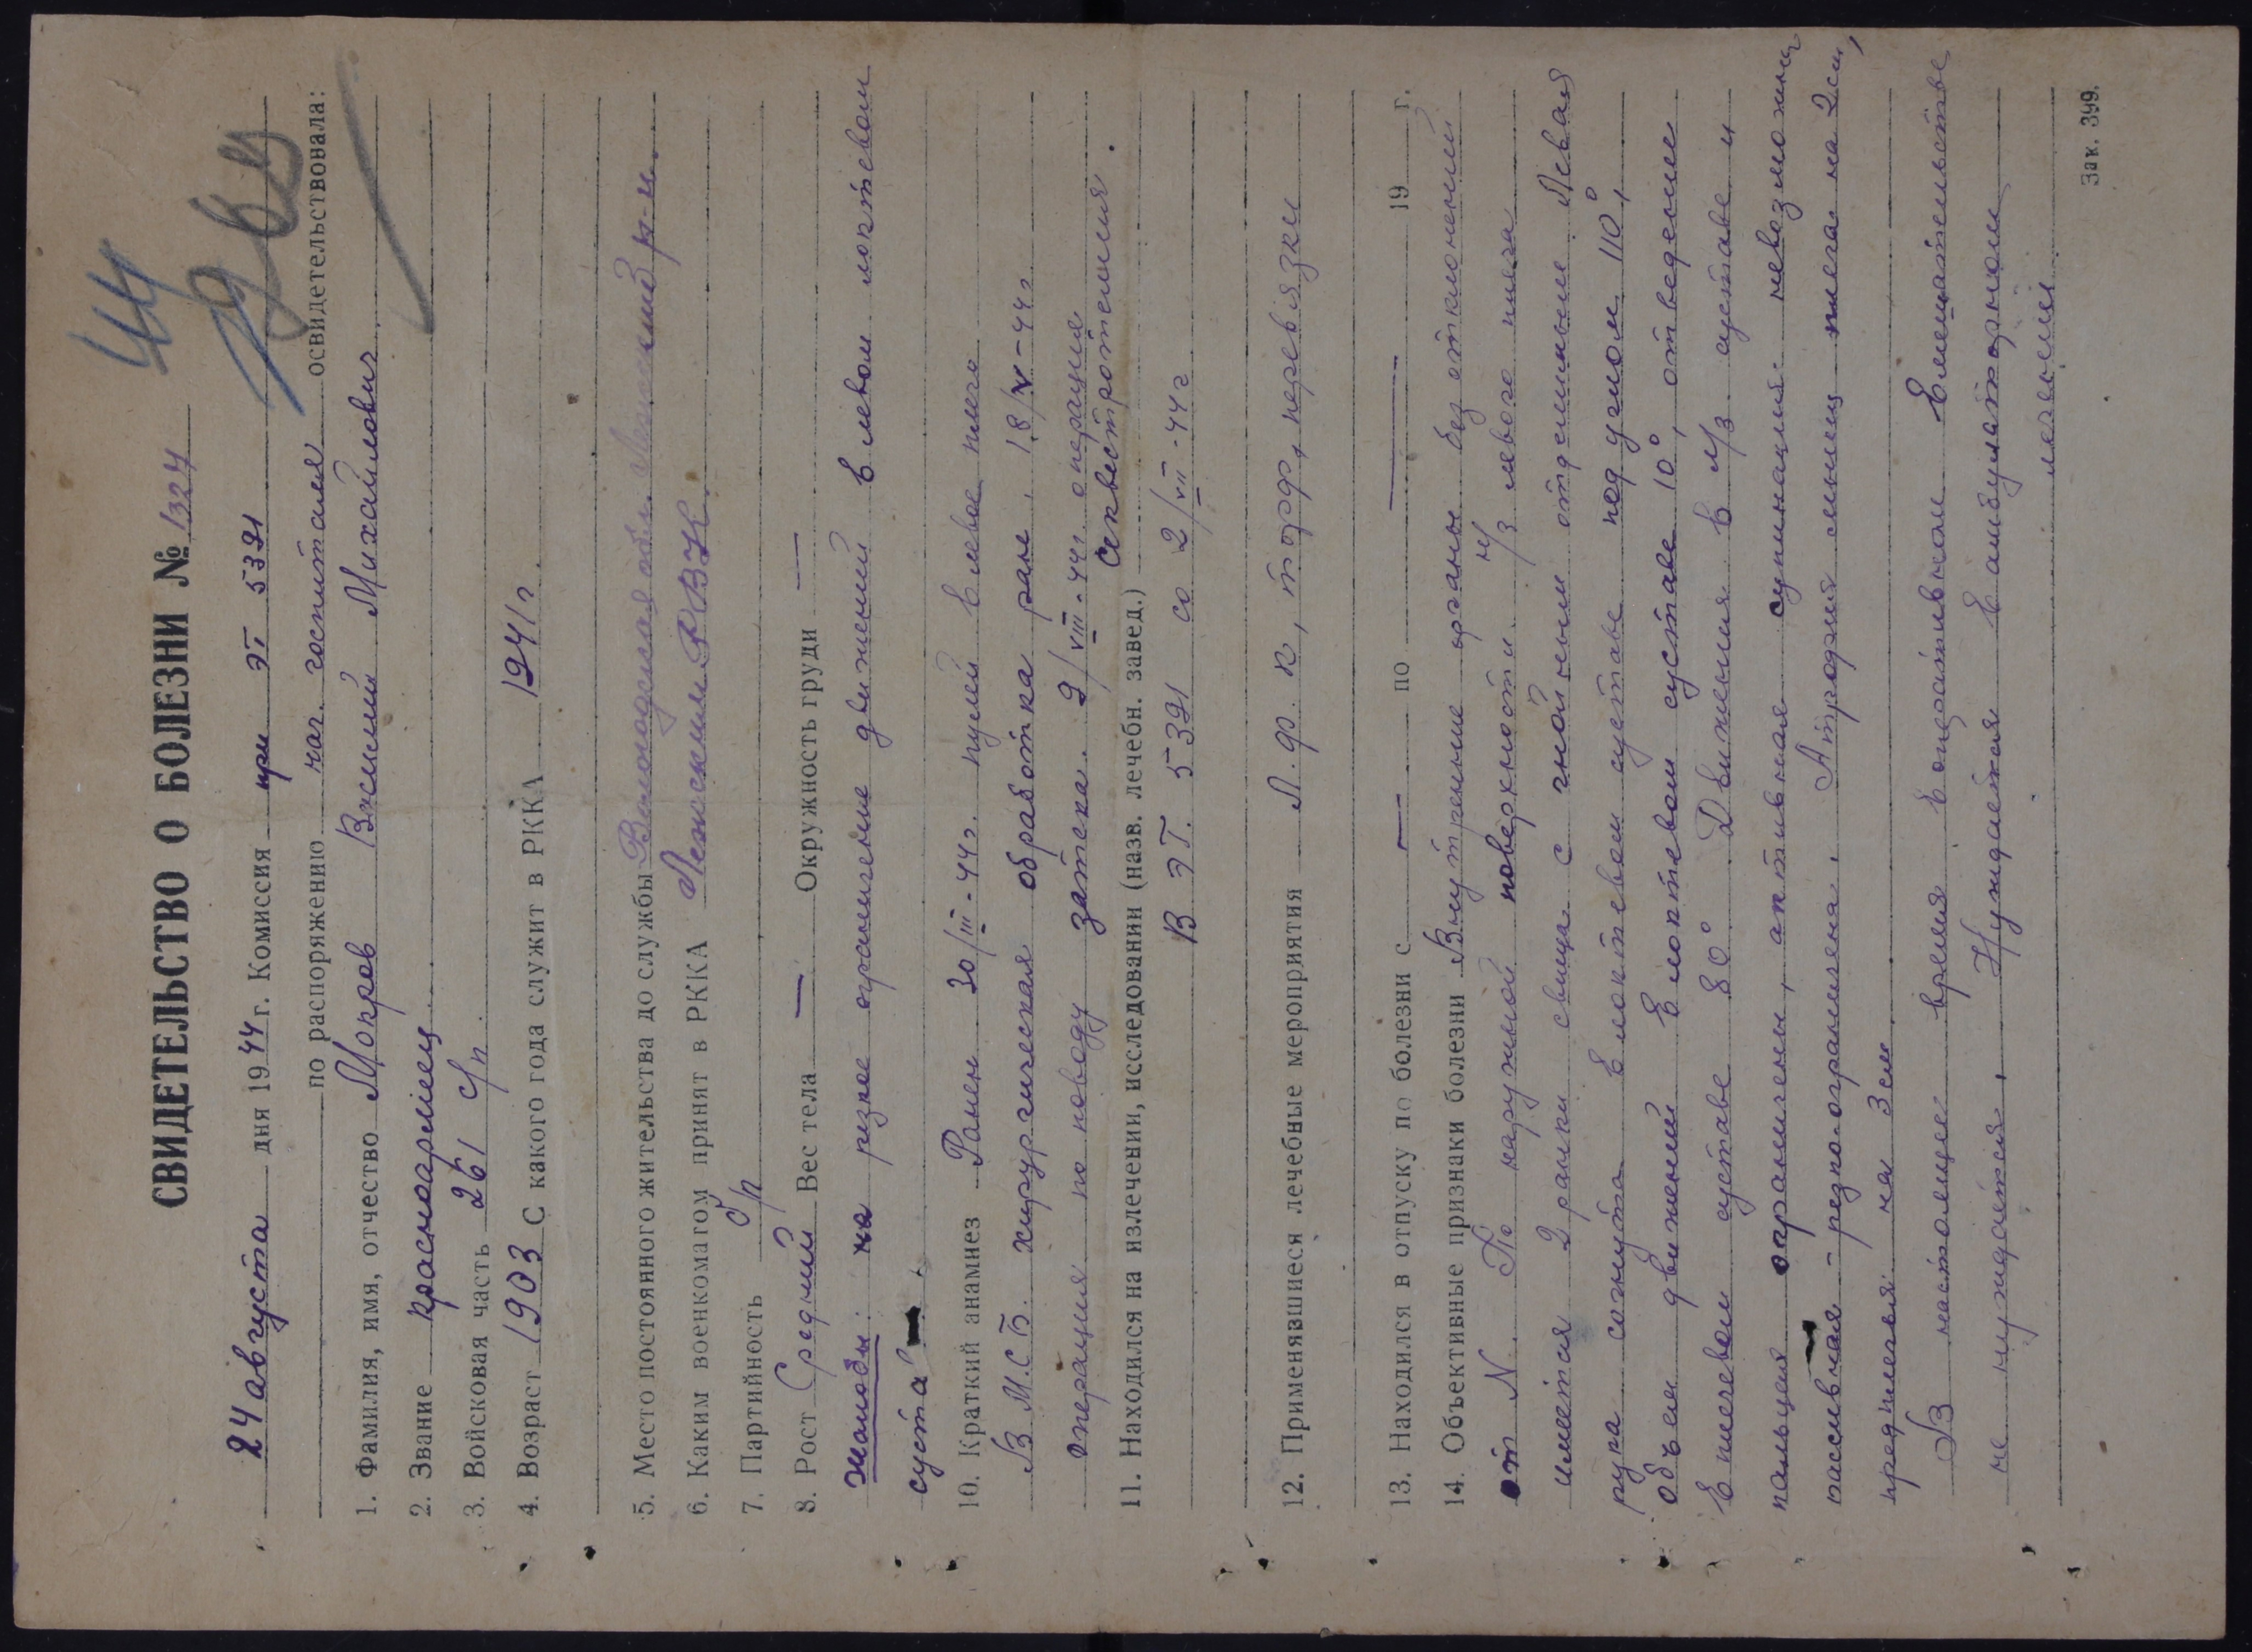 44
СВИДЕТЕЛЬСТВО О БОЛЕЗНИ № 1324
24 августа дня 1944 г. Комиссия при ЭГ 5391
по распоряжению нач. госпиталя освидетельствовала:
1. Фамилия, имя, отчество Мокров Михайлович
2. Звание красноармеец
3. Войсковая часть 261 с/п
4. Возраст 1903 С какого года служит в РККА 1941 г.
5. Место постоянного жительства до службы Вологодская обл. р-н.
6. Каким военкоматом принят в РККА РВК.
7. Партийность б/п
8. Рост Средний Вес тела — Окружность груди —
Жалобы: на резкое ограничение движений в левом локтевом
суста
10. Краткий анамнез Ранен 30/III-44г. пулей в левое плечо
В М.С.Б. хирургическая обработка раны, 18/V-44г
операция по поводу затека. 9/VIII-44г. операция
секвестротомия.
11. Находился на излечении, исследовании (назв. лечебн. завед.)
В ЭГ. 5391 со 2/VII-44г
12. Применявшиеся лечебные мероприятия Л.ф.к, перевязки
13. Находился в отпуску по болезни с — по — 19 г.
14. Объективные признаки болезни Внутренние органы без отклонений
от N. По наружной поверхности н/з левого плеча
имеется 2 ранки свища с гнойным отделяемым Левая
рука согнута в локтевом суставе под углом 110°,
объем движений в локтевом суставе 10°, отведение
в плечевом суставе 80°. Движения в л/з суставе и
пальцах ограничены, активная супинация невозможна
пассивная - резко ограничена. Атрофия мышц плеча на 2см,
предплечья на 3см
В настоящее время в оперативном вмешательстве
не нуждается. Нуждается в амбулаторном
лечении
Зак. 399.